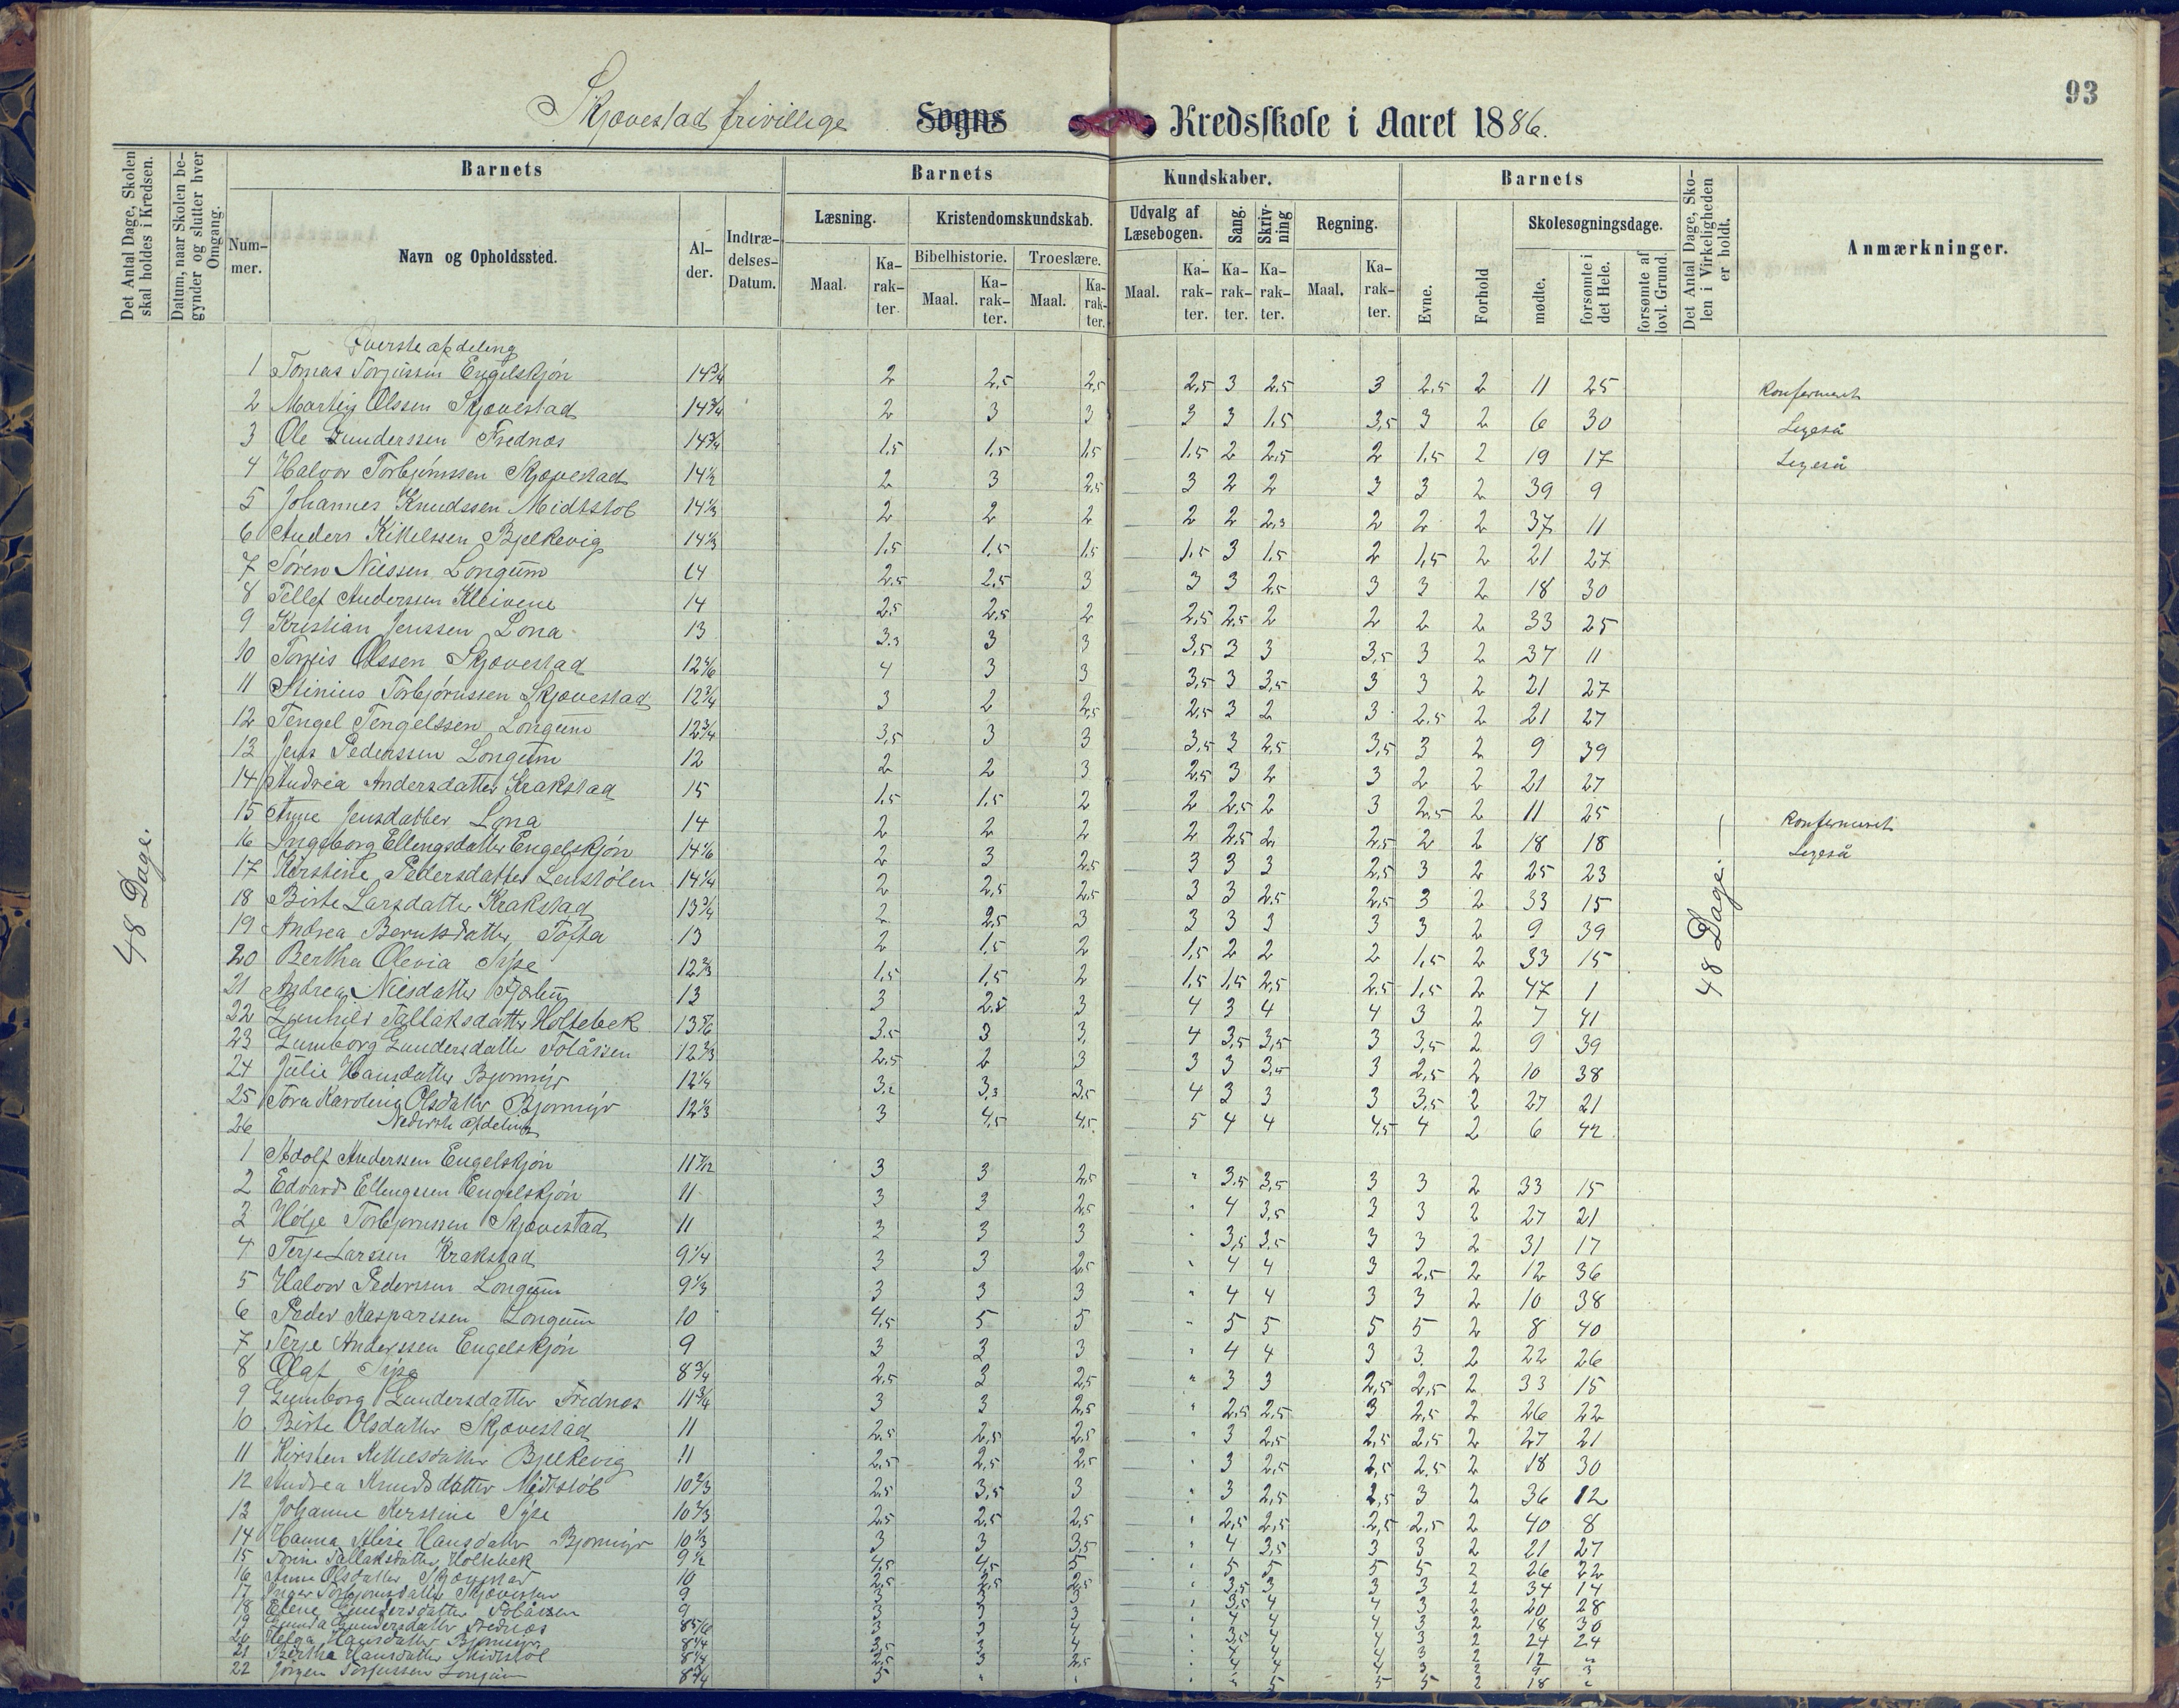 93
Skjævestad frivillige Sogns Kredsskole i Aaret 1886.
Det Antal Dage, Skolen skal holdes i Kredsen.
Datum, naar Skolen begynder og slutter hver Omgang.
Barnets
Nummer.
Navn og Opholdssted.
Alder.
Indtrædelses-Datum.
Barnets Kundskaber.
Læsning.
Maal. Karakter.
Kristendomskundskab.
Bibelhistorie. Troeslære.
Maal. Karakter. Maal. Karakter.
Udvalg af Læsebogen. Sang. Skrivning Regning.
Maal. Karakter. Karakter. Karakter. Maal. Karakter.
Barnets
Evne. Forhold
Skolesøgningsdage.
mødte. forsømte i det Hele. forsømte af lovl. Grund.
Det Antal Dage, Skolen i Virkeligheden er holdt.
Anmærkninger.
48 Dage.
48 Dage.
Øverste afdeling
1 Tomas Torjussen Engelskjøn 14¾ 2 2,5 2,5 2,5 3 2,5 3 2,5 2 11 25 Konfermeret
2 Olssen Skjævestad 14¾ 2 3 3 3 3 1,5 3,5 3 2 6 30 Ligeså
3 Ole Gunderssen Frednes 14¾ 1,5 1,5 1,5 1,5 2 2,5 2 1,5 2 19 17 Ligeså
4 Halvor Torbjørnssen Skjævestad 14½ 2 3 2,5 3 2 2 3 3 2 39 9
5 Johannes Knudssen Midtstøl 14⅓ 2 2 2 2 2 2,3 2 2 2 37 11
6 Anders Kittelssen Bjelkevig 14⅓ 1,5 1,5 1,5 1,5 3 1,5 2 1,5 2 21 27
7 Søren Nilssen Longum 14 2,5 2,5 3 3 3 2,5 3 3 2 18 30
8 Tellef Anderssen Kleivene 14 2,5 2,5 2 2,5 2,5 2 2 2 2 33 25
9 Kristian Jenssen Lona 13 3,3 3 3 3,5 3 3 3,5 3 2 37 11
10 Olssen Skjævestad 4 3 3 3,5 3 3,5 3 3 2 21 27
11 Stinius Torbjørnssen Skjævestad 12¾ 3 2 2,5 2,5 3 2 3 2,5 2 21 27
12 Tengel Tengelssen Longum 12¾ 3,5 3 3 3,5 3 2,5 3,5 3 2 9 39
13 Jens Pederssen Longum 12 2 2 3 2,5 3 2 3 2 2 21 27
14 Andrea Andersdatter Krakstad 15 1,5 1,5 2 2 2,5 2 3 2,5 2 11 25 Konfermeret
15 Anne Jensdatter Lona 14 2 2 2 2 2,5 2 2,5 2 2 18 18 Ligeså
16 Ingeborg Ellengsdatter Engelskjøn 14⅙ 2 3 2,5 3 3 3 2,5 3 2 25 23
17 Kirstine Pedersdatter Lenstølen 14¼ 2 2,5 2,5 3 3 2,5 2,5 3 2 33 15
18 Birte Larsdatter Krakstad 13¾ 2 2,5 3 3 3 3 3 3 2 9 39
19 Andrea Berntsdatter Tofta 13 2 1,5 2 1,5 2 2 2 1,5 2 33 15
20 Bertha Olevia 12⅔ 1,5 1,5 2 1,5 1,5 2,5 2,5 1,5 2 47 1
21 Andrea Nilsdatter 13 3 2,5 3 4 3 4 4 3 2 7 41
22 Gunhild Tallaksdatter Holtebek 13⅚ 3,5 3 3 4 3,5 3,5 3 3,5 2 9 39
23 Gunborg Gundersdatter Tolåssen 12⅔ 2,5 2 3 3 3 3,5 3 2,5 2 10 38
24 Julie Hansdatter Bjormyr 12¼ 3,2 3,3 3,5 4 3 3 3 3,5 2 27 21
25 Tora Karolina Olsdatter Bjormyr 12⅓ 3 4,5 4,5 5 4 4 4,5 4 2 6 42
26 Nederste afdeling
1 Adolf Anderssen Engelskjøn 11 7/12 3 3 2,5 " 3,5 3,5 3 3 2 33 15
2 Edvard Ellengssen Engelskjøn 11 3 3 2,5 " 4 3,5 3 3 2 27 21
3 Helje Torbjørnssen Skjævestad 11 3 3 3 " 3,5 3,5 3 3 2 31 17
4 Terje Larssen Krakstad 9¼ 3 3 2,5 " 4 4 3 2,5 2 12 36
5 Halvor Pederssen Longum 9⅓ 3 3 3 " 4 4 3 3 2 10 38
6 Peder Kasparssen Longum 10 4,5 5 5 " 5 5 5 5 2 8 40
7 Terje Anderssen Engelskjøn 9 3 3 3 " 4 4 3 3 2 22 26
8 Olaf 8¾ 2,5 3 2,5 " 3 3 2,5 2,5 2 33 15
9 Gunborg Gundersdatter Frednes 11¾ 3 3 2,5 " 2,5 2,5 3 2,5 2 26 22
10 Birte Olsdatter Skjævestad 11 2,5 2,5 2,5 " 3 2,5 2,5 2,5 2 27 21
11 Kirsten Kittelsdatter Bjelkevig 11 2,5 2,5 2,5 " 3 2,5 2,5 2,5 2 18 30
12 Andrea Knudsdatter Midtstøl 10⅔ 2,5 3,5 3 " 3 2,5 2,5 3 2 36 12
13 Johanne Kerstine 10⅔ 2,5 2,5 2,5 " 2,5 2,5 2,5 2,5 2 40 8
14 Hanna Hansdatter Bjormyr 10⅓ 3 3 3,5 " 4 3,5 3 3 2 21 27
15 Tallaksdatter Holtebek 9½ 4,5 4,5 5 " 5 5 5 5 2 26 22
16 Anne Olsdatter Skjævestad 10 2,5 2,5 2,5 " 3,5 3 3 3 2 34 14
17 Inger Torbjørnsdatter Skjævestad 9 3 3 3 " 3,5 4 4 3 2 20 28
18 Elene Gundersdatter Tolåssen 9 3 3 3 " 4 4 4 3 2 18 30
19 Gunda Gundersdatter Frednes 8⅚ 3 3 4 " 3,5 4 4 3 2 24 24
20 Helga Hansdatter Bjormyr 8¼
21 Bertha Hansdatter Midtstøl 8¼
22 Jörgen Torjussen Longum 8¾